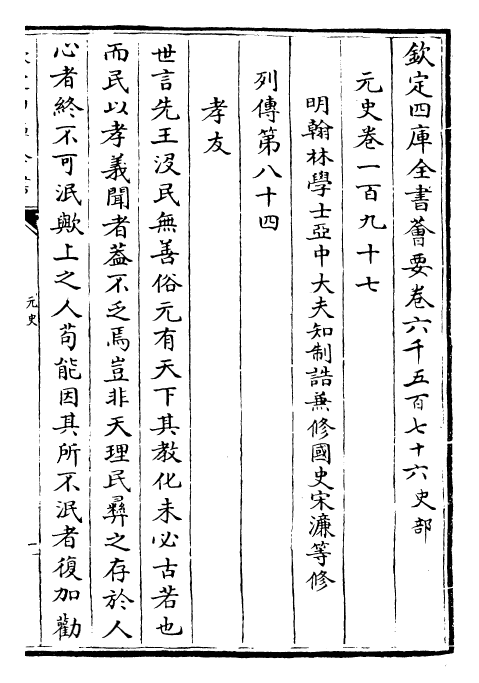 欽定四庫全書薈要卷六千五百七十六史部
元史卷一百九十七
明翰林學士亞中大夫知制誥兼修國史宋濂等修
列傳第八十四
孝友
世言先王沒民無善俗元有天下其教化未必古若也
而民以孝義聞者葢不乏焉豈非天理民彛之存於人
心者終不可泯歟上之人苟能因其所不泯者復加勸
元史